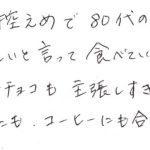 控えめで 80代の
いと言って 食べてい
チョコも 主張しすぎ
にも、コーヒーにも合